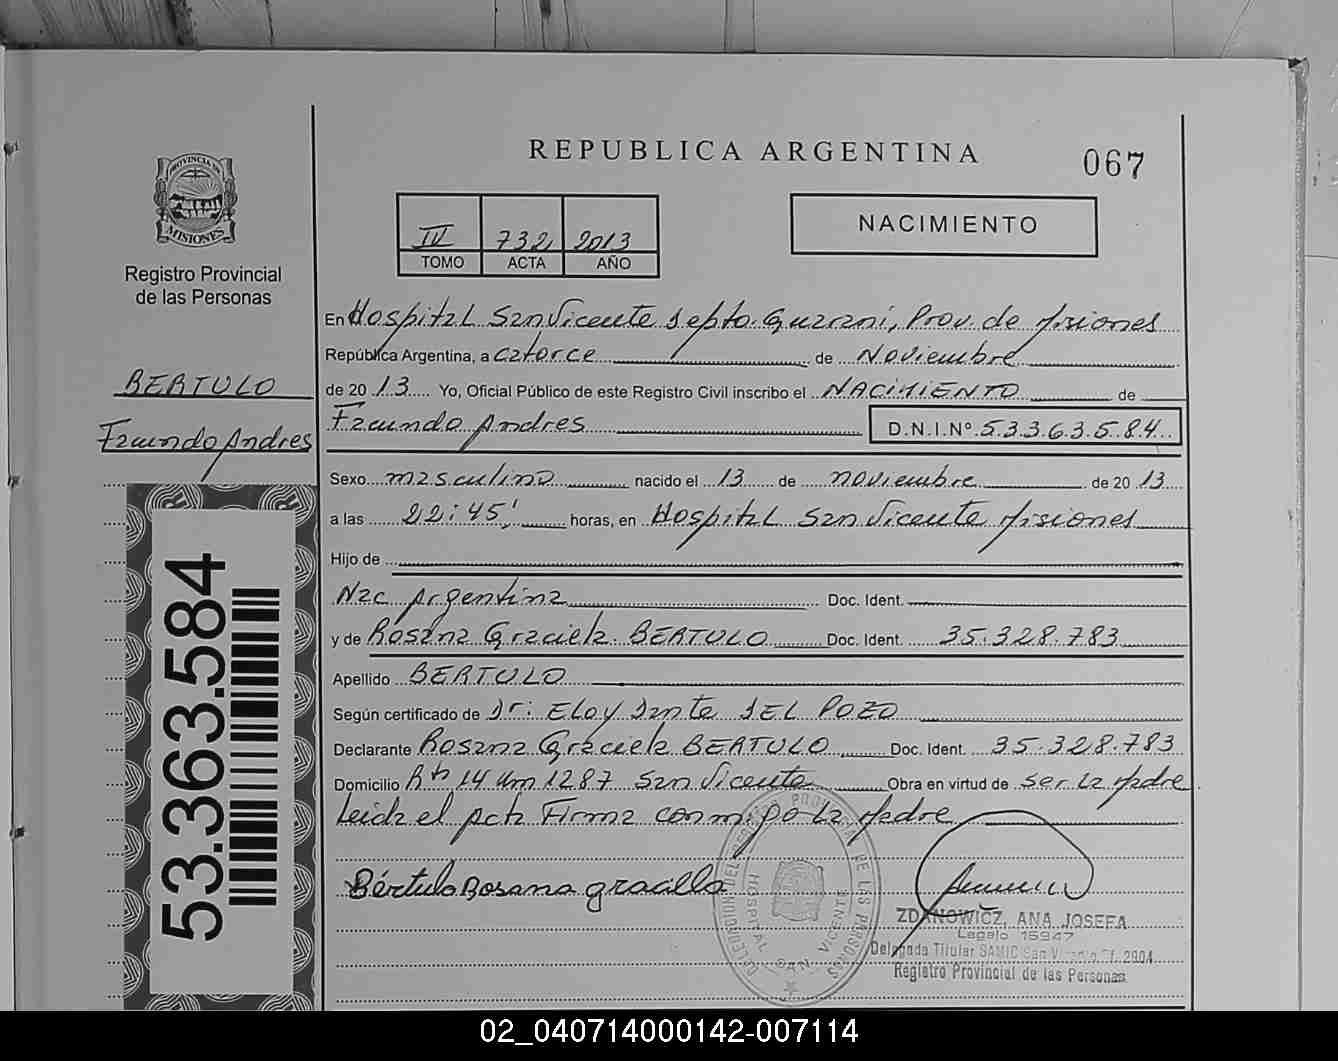 REPUBLICA ARGENTINA
067
PROVINCIA DE
MISIONES
Registro Provincial
de las Personas
IV 732 2013
TOMO ACTA AÑO
NACIMIENTO
En Hospital San Vicente Depto. Guaraní, Prov. de Misiones
República Argentina, a catorce de Noviembre
de 2013 Yo, Oficial Público de este Registro Civil inscribo el NACIMIENTO de
BERTULO
Facundo Andres
Facundo Andres D.N.I.Nº 53363584
Sexo masculino nacido el 13 de noviembre de 2013
a las 22:45' horas, en Hospital San Vicente Misiones
Hijo de
Nac Argentina Doc. Ident.
y de Rosana Graciela BERTULO Doc. Ident. 35.328.783
Apellido BERTULO
Según certificado de Dr: Eloy Dante DEL POZO
Declarante Rosana Graciela BERTULO Doc. Ident. 35.328.783
Domicilio Rta 14 Km 1287 San Vicente Obra en virtud de ser la Madre
Leida el Acta Firma conmigo la Madre
53.363.584
Bértulo Rosana gracilla
HOSPITAL SAN VICENTE
ZDANOWICZ, ANA JOSEFA
Legajo 15947
Delegada Titular SAMIC San Vicente 2904
Registro Provincial de las Personas
02_040714000142-007114